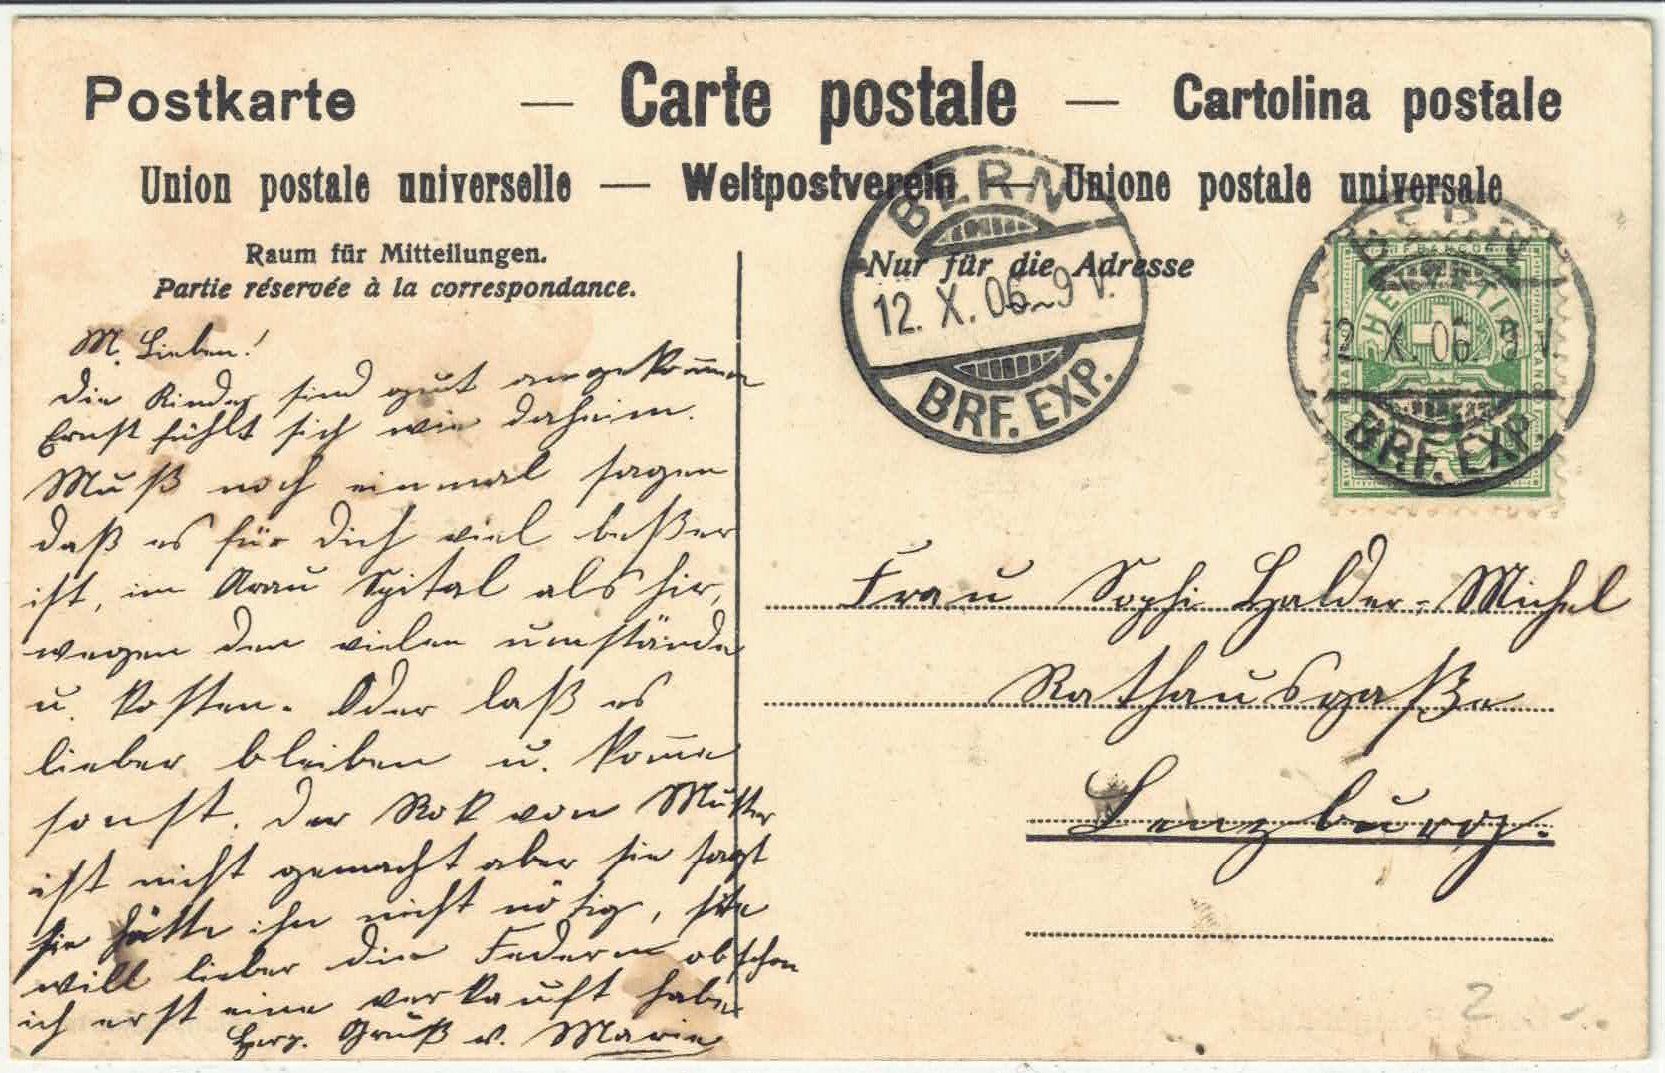 Postkarte — Carte postale — Cartolina postale
Union postale universelle — Weltpostverein — Unione postale universale
Raum für Mitteilungen.
Partie réservée à la correspondance.
Nur für die Adresse
BERN
12. X. 06 - 9 V.
BRF. EXP.
BERN
12. X. 06. 9 V.
BRF. EXP.
FRANCO
HELVETIA
M. Lieben!
Die Kinder sind gut angekom̄en
Ernst fühlt sich wie daheim.
Muß noch einmal sagen
daß es für Dich viel beßer
ist, im Arau Spital als hir,
wegen den vielen umstände
u. kosten. Oder laß es
lieber bleiben u. kom̄e
sonst. Der Rok von Mutter
ist nicht gemacht aber sie sagt
sie hätte ihn nicht nötig, sie
will lieber die Federn obschon
ich erst eine verkauft habe
Herz. Gruß v. Marie
Frau Sophi Halder-Michel
Rathausgaße
Lenzburg.
2